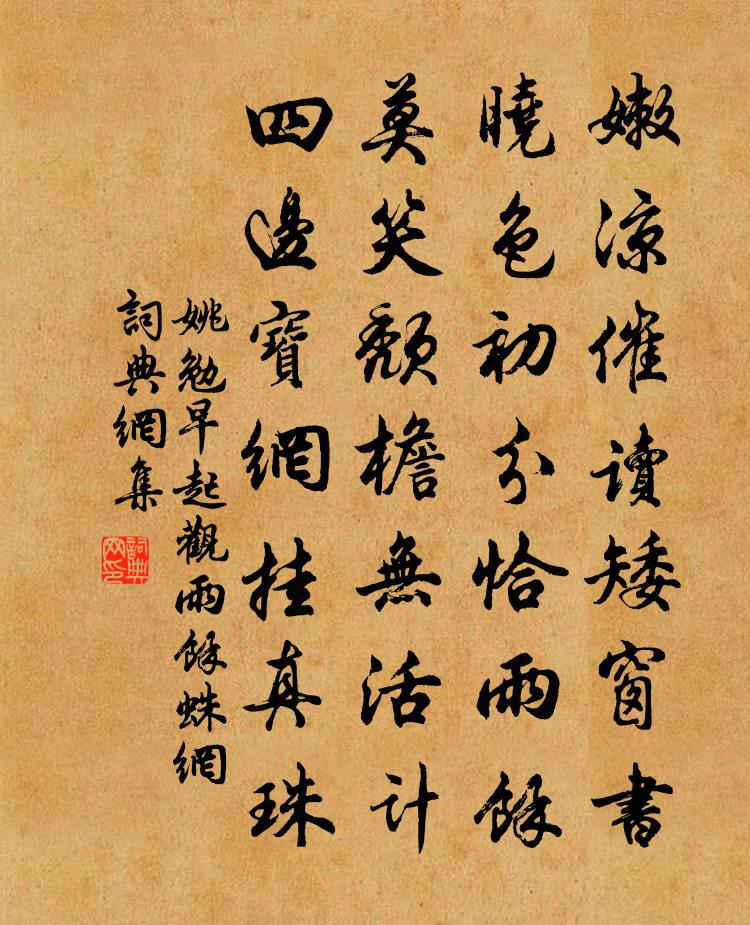 嫩涼催讀矮窗書
曉色初分恰雨餘
莫笑頹檐無活計
四邊寶網挂真珠
姚勉早起觀雨餘蛛網
詞典網集
詞典网印